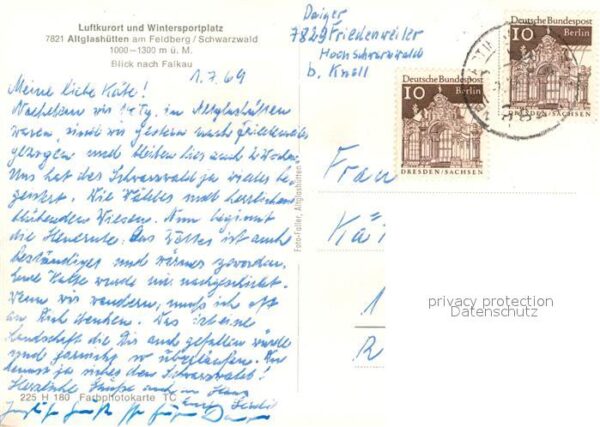 Luftkurort und Wintersportplatz
7821 Altglashütten am Feldberg / Schwarzwald
1000-1300 m ü. M.
Blick nach Falkau
1.7.69
Meine liebe Käte!
Nachdem wir in Altglashütten
waren, sind wir gestern nach Friedenweiler
gezogen und bleiben hier noch 2 Wochen.
Uns hat der Schwarzwald ja wieder be-
geistert. Die Wälder und herrlichen
blühenden Wiesen. Nun beginnt
die Heuernte. Das Wetter ist auch
beständiger und wärmer geworden.
Eure Karte wurde uns nachgeschickt.
Wenn wir wandern, muß ich oft
an Dich denken. Das ist eine
Landschaft die Dir auch gefallen würde
und garnicht so überlaufen. Du
kennst ja den Schwarzwald!
Herzliche Grüße auch an Hans
225 H 180 Farbphotokarte TC
Foto-Faller, Altglashütten
7829 Friedenweiler
Hochschwarzwald
b. Knöll
Deutsche Bundespost
10 Berlin
DRESDEN/SACHSEN
Deutsche Bundespost
10 Berlin
DRESDEN/SACHSEN
Frau
Kä
1
R
privacy protection
Datenschutz